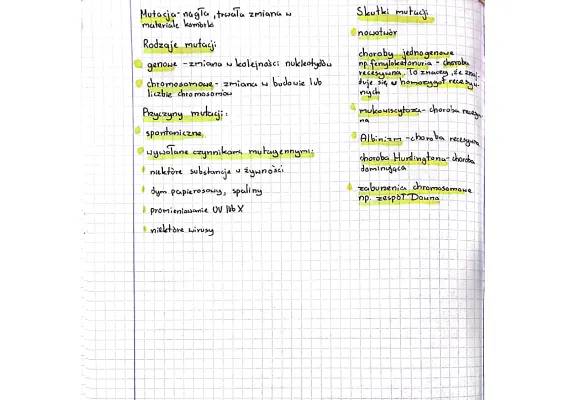 Mutacja- nagła, trwała zmiana w
materiale komórki
Rodzaje mutacji
genowe - zmiana w kolejności nukleotydów
chromosomowe - zmiana w budowie lub
liczbie chromosomów
Przyczyny mutacji:
spontaniczne
wywołane czynnikami mutagennymi:
niektóre substancje w żywności
dym papierosowy, spaliny
promieniowanie UV lub X
niektóre wirusy
Skutki mutacji
nowotwór
choroby jednogenowe
np. fenyloketonuria - choroba
recesywna. To znaczy, że znaj-
duje się w homozygot recesyw-
nych
mukowiscytoza - choroba recesyw-
na
Albinizm - choroba recesywna
choroba Huntingtona - choroba
dominująca
zaburzenia chromosomowe
np. zespół Downa